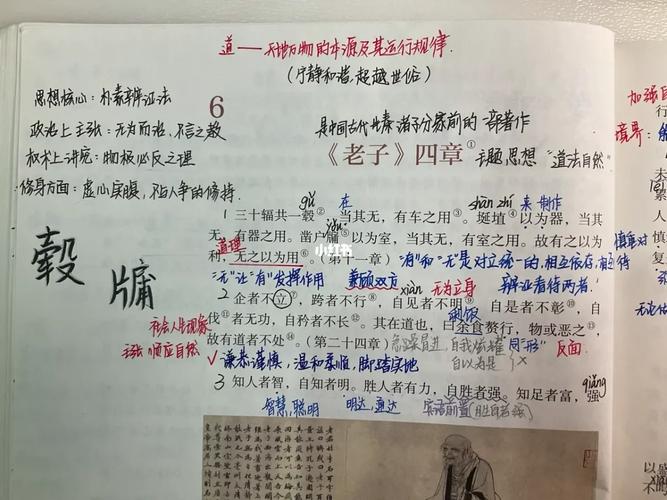 道——天地万物的本源及其运行规律.
(宁静和谐,超越世俗)
思想核心:朴素辩证法
政治上主张:无为而治,不言之教
权术上讲究:物极必反之理
修身方面:虚心实腹,不与人争的修持.
6
是中国古代先秦诸子分家前的一部著作
《老子》四章① 主题思想“道法自然”
gǔ 在 shān zhí 来 制作
1 三十辐共一毂②,当其无,有车之用③。埏埴④以为器,当其
无,有器之用。凿户牖⑤以为室,当其无,有室之用。故有之以为
道理
利,无之以为用⑥。(第十一章)“有”和“无”是对立统一的,相互依存,相互待
“无”让“有”发挥作用 兼顾双方 xiàn 无为立身 辩证看待两者.
毂 牖
2 企者不立⑦,跨者不行⑧,自见者不明⑨,自是者不彰⑩,自
剩饭
伐⑪者无功,自矜者不长⑫。其在道也,曰余食赘行,物或恶之⑬,
故有道者不处⑭。(第二十四章)
同“形” 反面.
社会人生现象
主张 顺应自然
√谦恭谨慎,温和柔顺,脚踏实地
自以为是
qiǎng
3 知人者智,自知者明。胜人者有力,自胜者强。知足者富,强
智慧,聪明 明达,通达 宾语前置(胜自者强)
加强自
境界:
慎重对
小红书